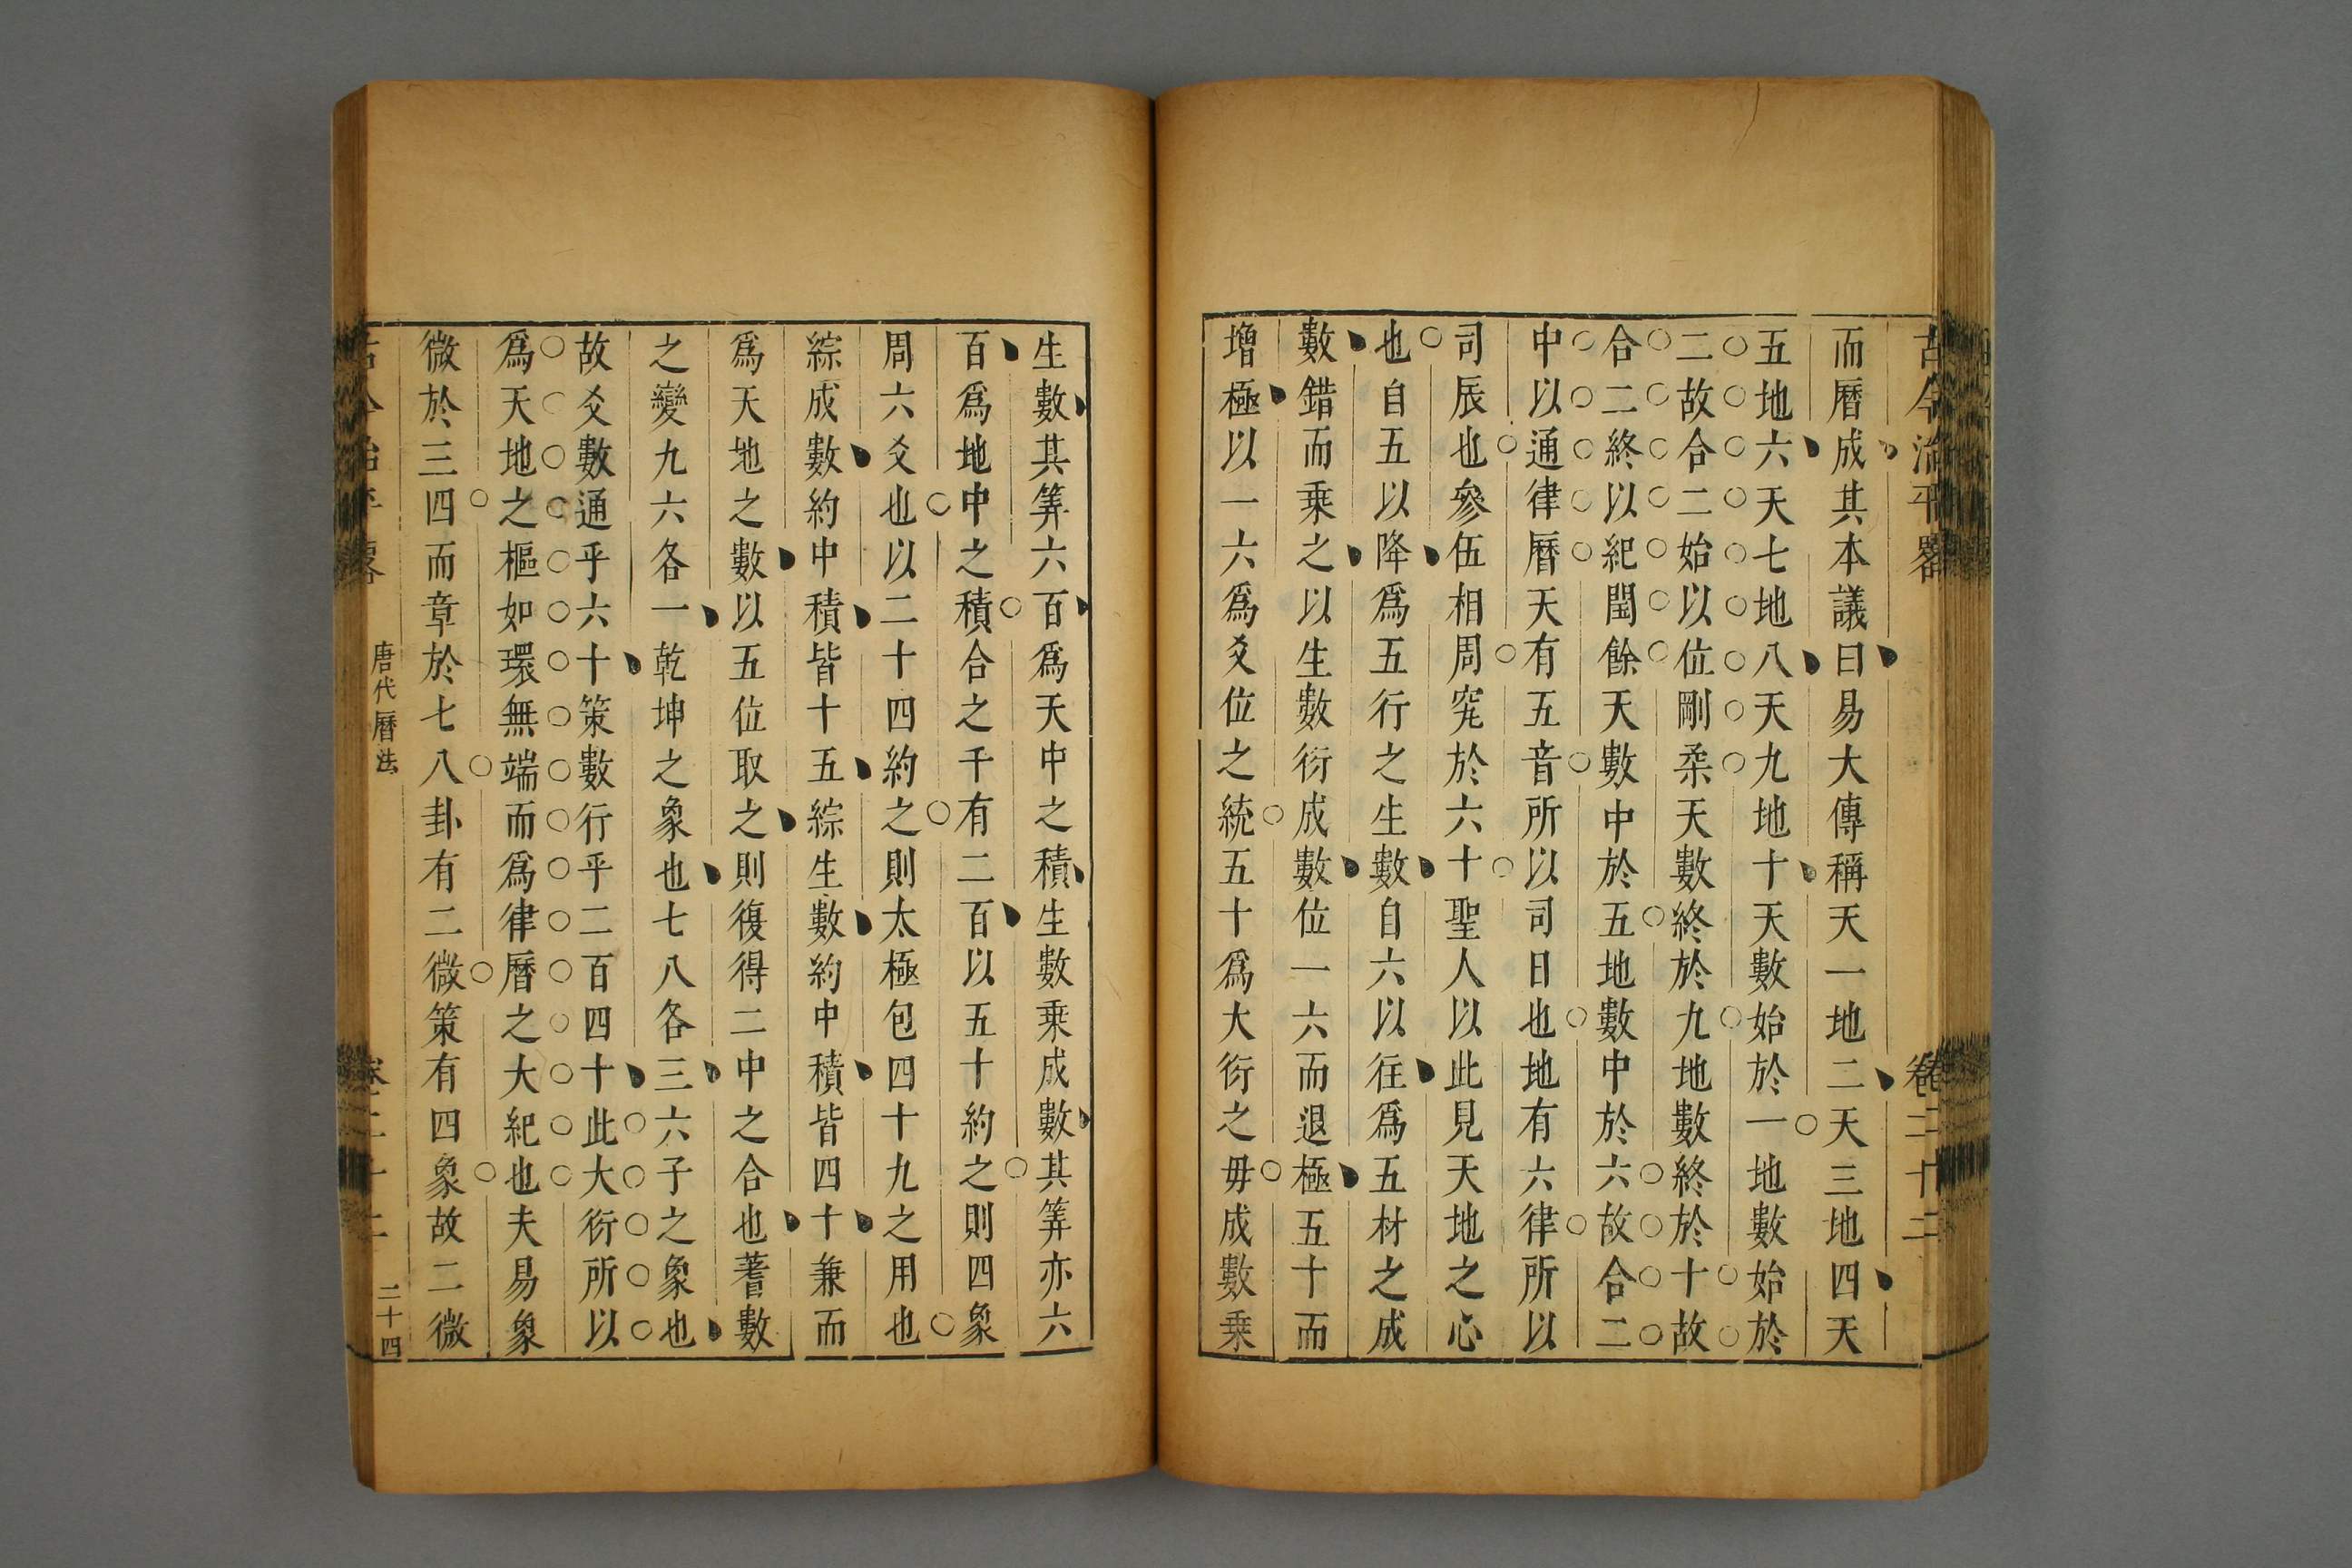 古今治平畧 卷二十二
而曆成其本議曰易大傳稱天一地二天三地四天
五地六天七地八天九地十天數始於一地數始於
二故合二始以位剛柔天數終於九地數終於十故
合二終以紀閏餘天數中於五地數中於六故合二
中以通律曆天有五音所以司日也地有六律所以
司辰也參伍相周究於六十聖人以此見天地之心
也自五以降爲五行之生數自六以往爲五材之成
數錯而乗之以生數衍成數位一六而退極五十而
增極以一六爲爻位之統五十爲大衍之毋成數乗
生數其筭六百爲天中之積生數乗成數其筭亦六
百爲地中之積合之千有二百以五十約之則四象
周六爻也以二十四約之則太極包四十九之用也
綜成數約中積皆十五綜生數約中積皆四十兼而
爲天地之數以五位取之則復得二中之合也蓍數
之變九六各一乾坤之象也七八各三六子之象也
故爻數通乎六十策數行乎二百四十此大衍所以
爲天地之樞如環無端而爲律曆之大紀也夫易象
微於三四而章於七八卦有二微策有四象故二微
古今治平畧 唐代曆法 卷二十二 二十四